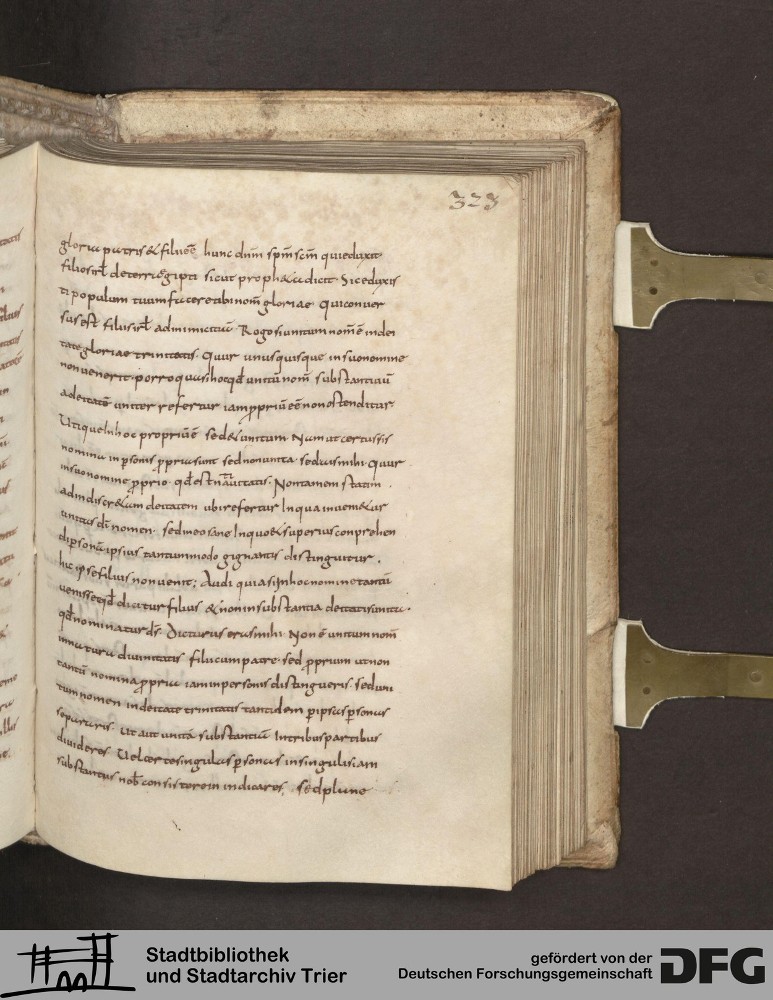 323
gloria patris & filii ē hunc dnm spm scm qui eduxit
filios isrl de terra egipti sicut propheta dicit Sic eduxis
ti populum tuum facere tibi nom gloriae qui conuer
sus est filiis isrl ad inimicitia Rogo si unitum nom ē in dei
tate gloriae trinitatis Quur unusquisque in suo nomine
non uenerit porro quasi hoc qd unitū nom substantiaū
a deitate uniter refertur iam ppriū eē non ostenditur
Utique In hoc propriū ē sed & unitum Nam ut certus sis
nomina in psonis ppria sunt sed non unita sed uis mihi quur
in suo nomine pprio qd est Non tamen statim
ad indiscr&am deitatem ubi refertur In qua inuenitur
unitas di nomen sed in eo sane In quo & superius conprehen
di psona ipsius tantummodo gignantis distinguitur
hic ipse filius non uenit; Audi quia si In hoc nomine tantū
uenisse qd dicitur filius & non in substantia deitatis unitae
qd nominatur ds Dicturus eras mihi Non ē unitum nom
in natura diuinitatis filii cum patre sed pprium ut non
tantū nomina ppria iam in personis distingueris sed uni
tum nomen in deitate trinitatis tantidem p ipsas psonas
separaris ut aut unita substantia In tribus partibus
diuideres Uel certe singulas psonas in singulis iam
substantiis nob consistorem indicares, sed plane
Stadtbibliothek
und Stadtarchiv Trier
gefördert von der
Deutschen Forschungsgemeinschaft
DFG